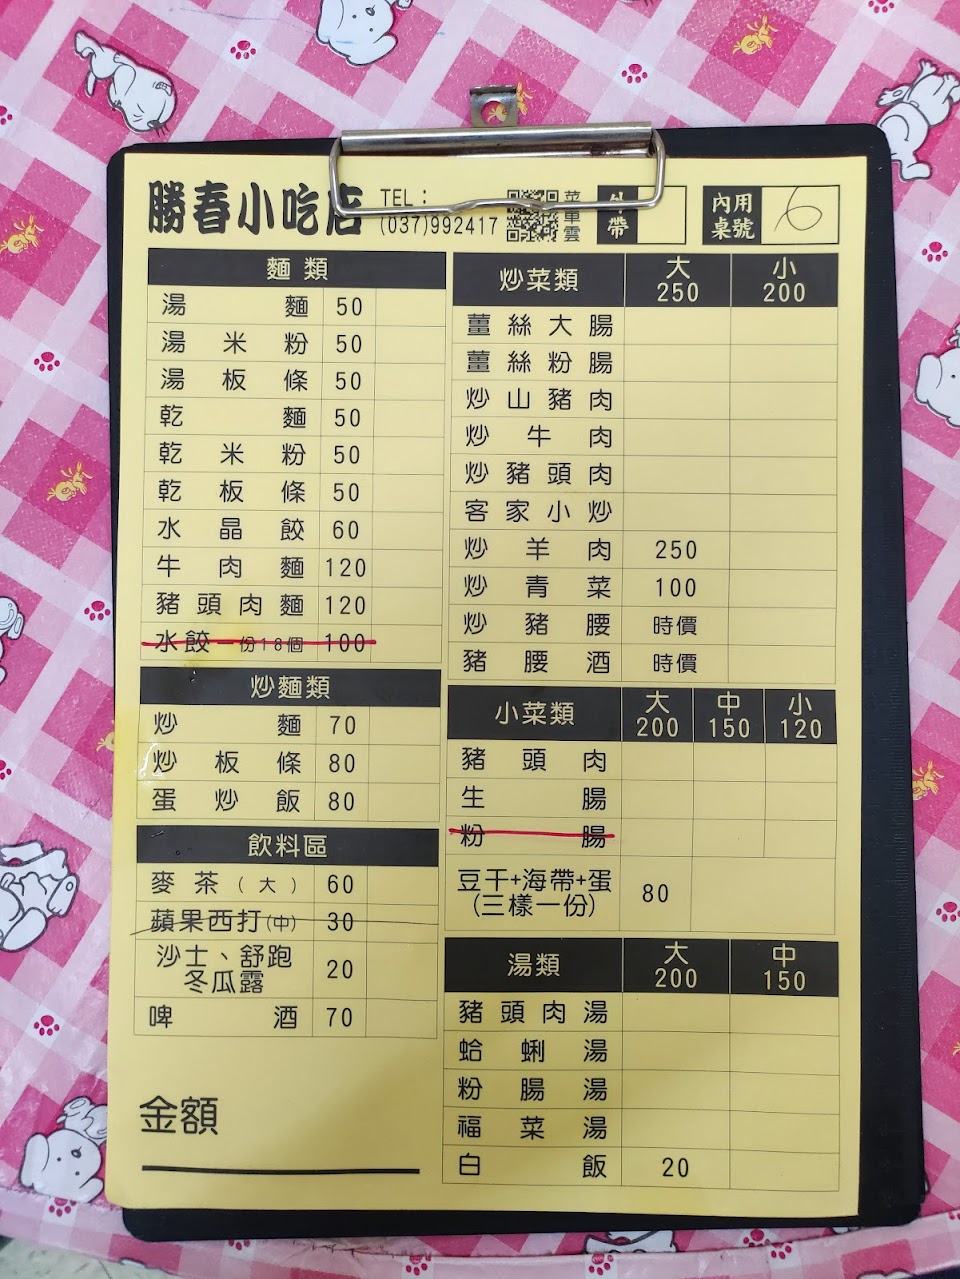 勝春小吃店
TEL：
(037)992417
菜單雲
外帶
內用桌號 6
麵類
湯麵 50
湯米粉 50
湯板條 50
乾麵 50
乾米粉 50
乾板條 50
水晶餃 60
牛肉麵 120
豬頭肉麵 120
水餃一份18個 100
炒麵類
炒麵 70
炒板條 80
蛋炒飯 80
飲料區
麥茶(大) 60
蘋果西打(中) 30
沙士、舒跑
冬瓜露 20
啤酒 70
金額
炒菜類 大250 小200
薑絲大腸
薑絲粉腸
炒山豬肉
炒牛肉
炒豬頭肉
客家小炒
炒羊肉 250
炒青菜 100
炒豬腰 時價
豬腰酒 時價
小菜類 大200 中150 小120
豬頭肉
生腸
粉腸
豆干+海帶+蛋
(三樣一份) 80
湯類 大200 中150
豬頭肉湯
蛤蜊湯
粉腸湯
福菜湯
白飯 20